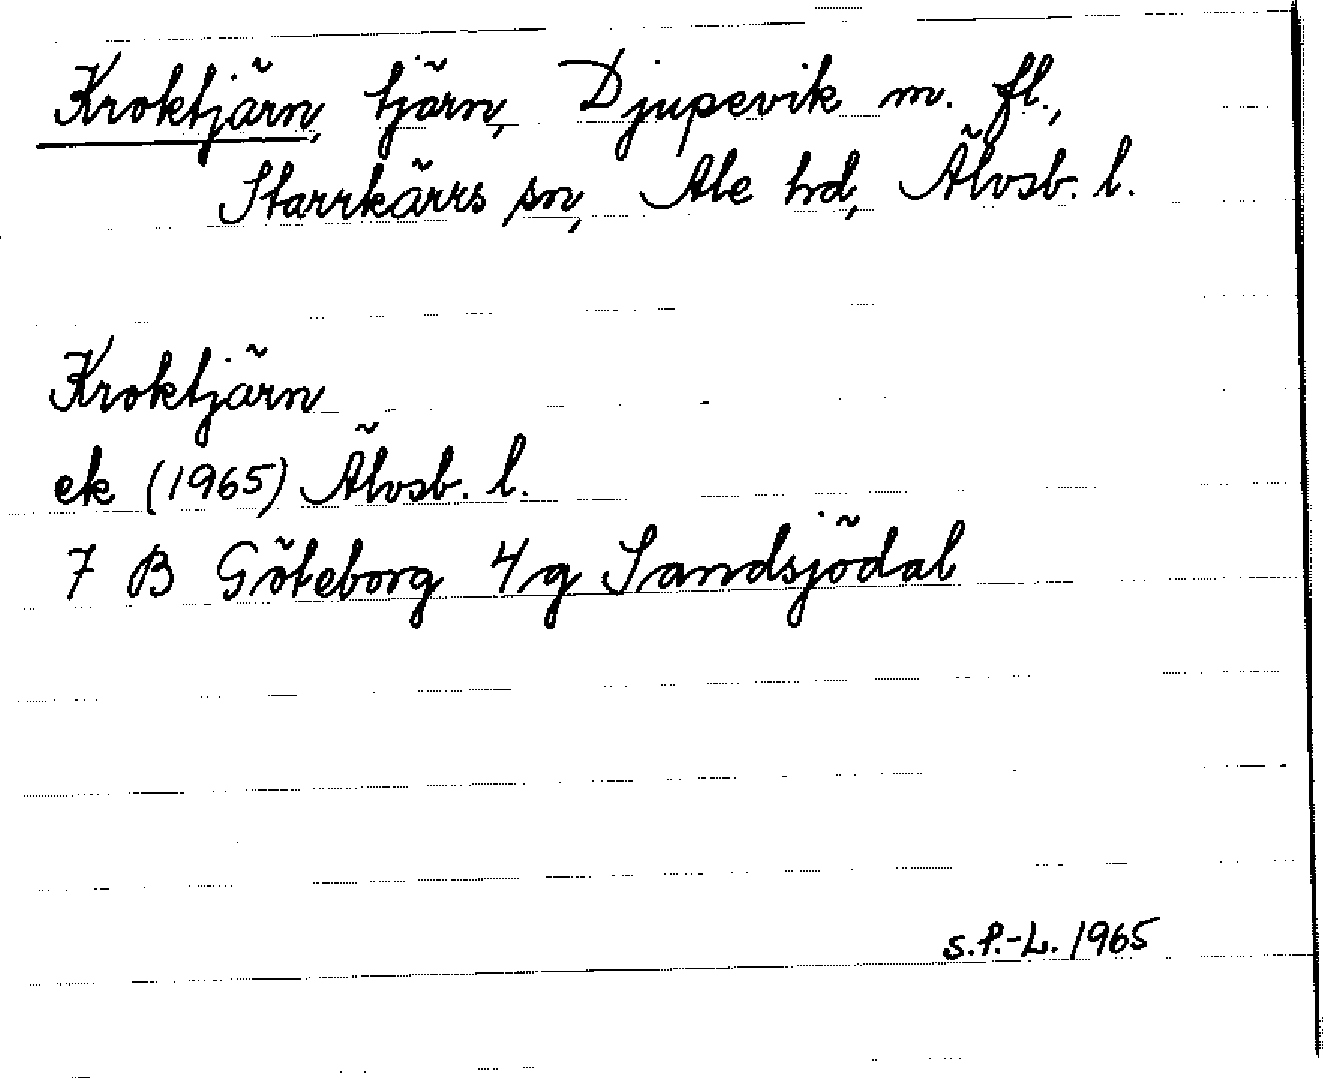 Kroktjärn, tjärn, Djupevik m. fl.,
Starrkärrs sn, Ale hd, Älvsb. l.
Kroktjärn
ek (1965) Älvsb. l.
7 B Göteborg 4g Sandsjödal
S.P.-L. 1965